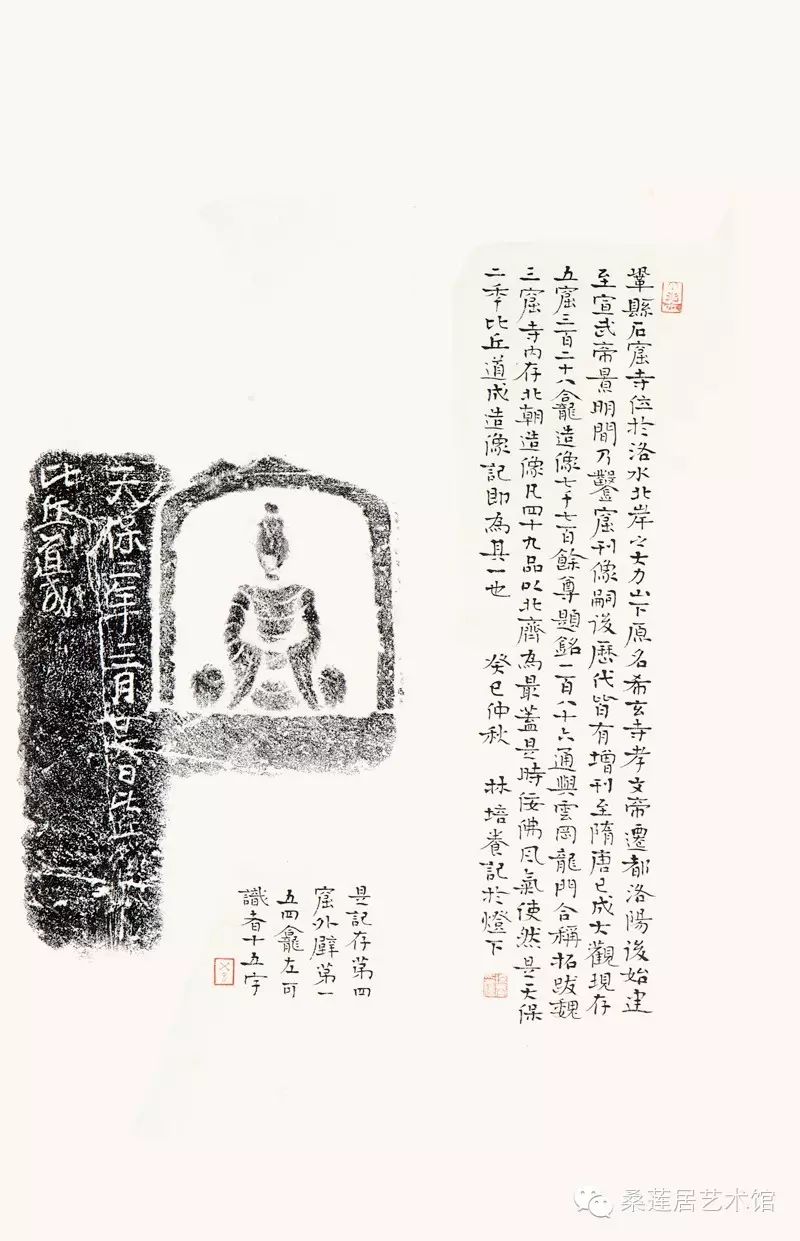 鞏縣石窟寺位於洛水北岸之大力山下原名希玄寺孝文帝遷都洛陽後始建
至宣武帝景明間乃鑿窟刊像嗣後歷代皆有增刊至隋唐已成大觀現存
五窟三百二十八龕造像七千七百餘尊題銘一百八十六通與雲岡龍門合稱拓跋魏
三窟寺內存北朝造像凡四十九品以北齊為最蓋是時佞佛風氣使然是天保
二秊比丘道成造像記即為其一也 癸巳仲秋 林培養記於燈下
是記存第四
窟外壁第一
五四龕左可
識者十五字
天保二年三月廿日比丘
比丘道成
桑莲居艺术馆